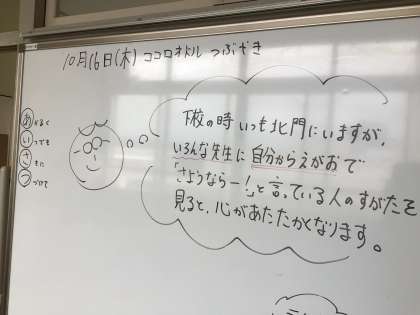 10月16日(木) ココロネドル つぶやき
あかるく
いつでも
さきに
つづけて
下校の時 いつも北門にいますが、
いろんな先生に自分からえがおで
「さようならー!」と言っている人のすがたを
見ると、心があたたかくなります。